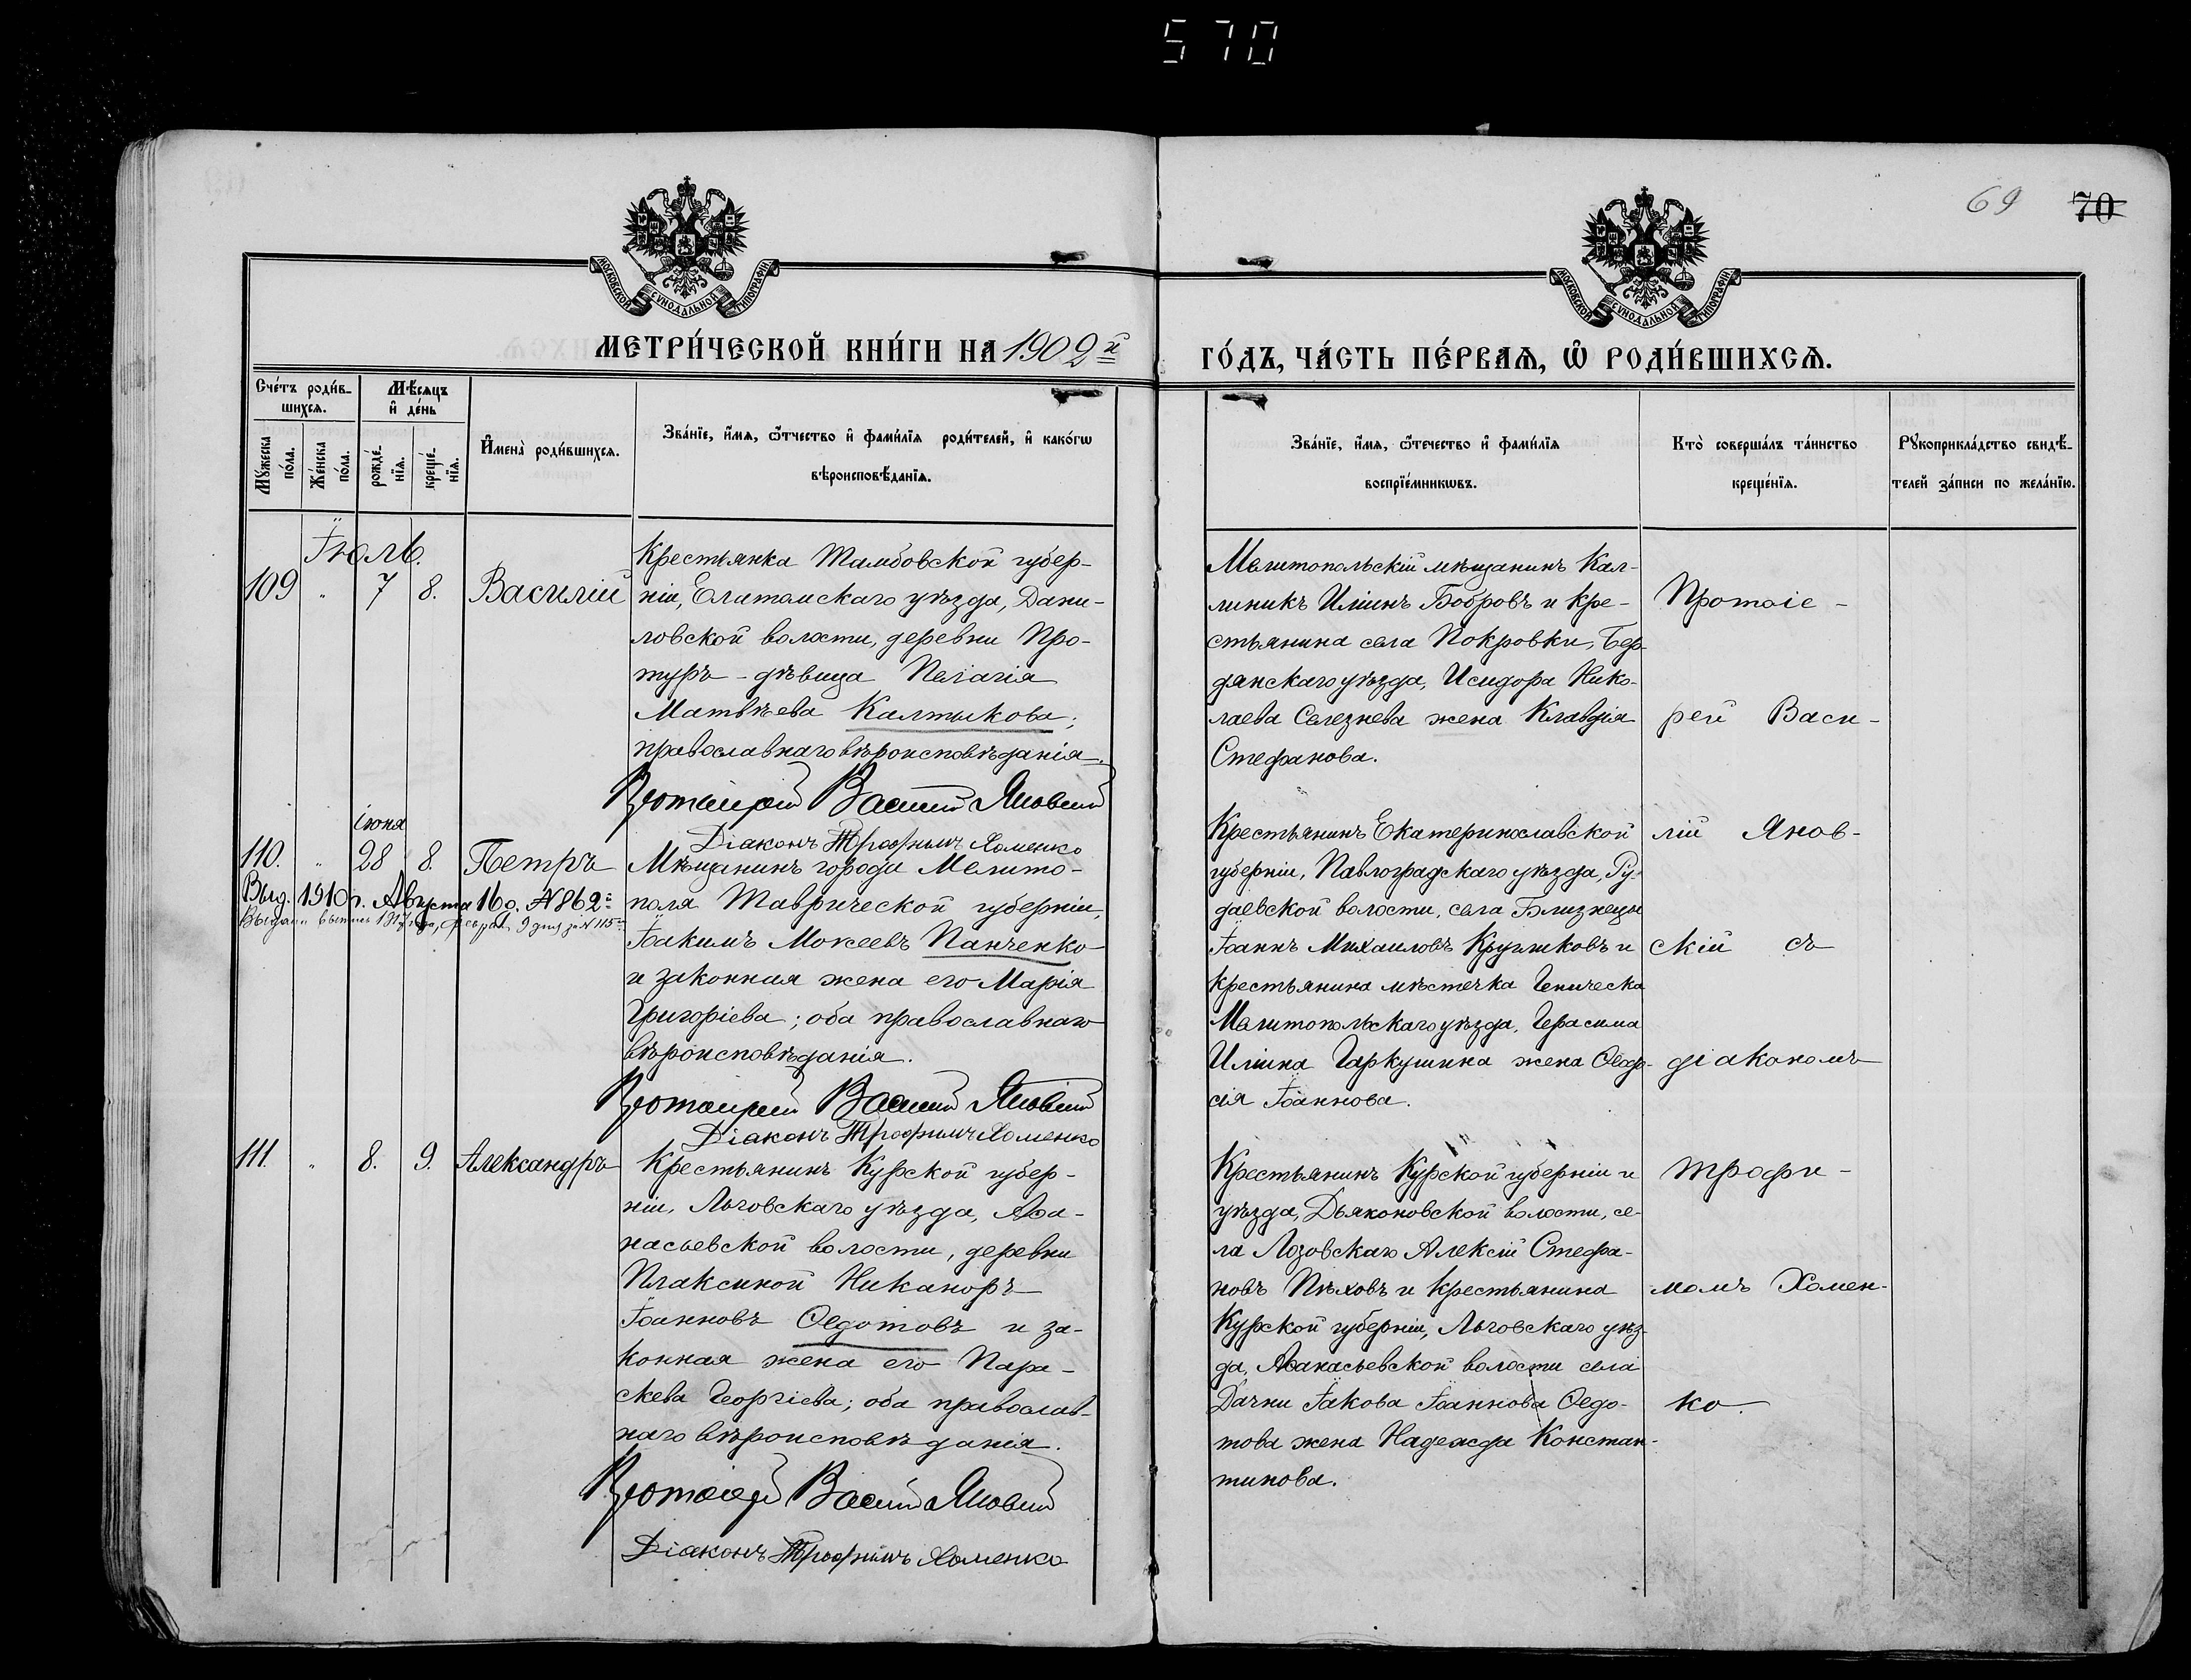 570
69 70
МОСКОВСКОЙ СУНОДАЛЬНОЙ ТИПОГРАФІИ
МОСКОВСКОЙ СУНОДАЛЬНОЙ ТИПОГРАФІИ
МЕТРИ́ЧЕСКОЙ КНИ́ГИ НА 1902й
ГО́ДЪ, ЧА́СТЬ ПЕ́РВАѦ, Ѡ҆ РОДИ́ВШИХСѦ.
Сче́тъ роди́в-
шихсѧ.
Мѣ́сяцъ
и҆ де́нь
Мꙋ́жеска
по́ла.
Же́нска
по́ла.
рожде́-
нїѧ.
креще́-
нїѧ.
И҆мена̀ роди́вшихсѧ.
Зва́нїе, и҆́мѧ, ѻ҆́тчество и҆ фами́лїѧ роди́телей, и҆ како́гѡ
вѣроисповѣ́данїѧ.
Зва́нїе, и҆́мѧ, ѻ҆те́чество и҆ фами́лїѧ
воспрїе́мникѡвъ.
Кто̀ соверша́лъ та́инство
креще́нїѧ.
Рꙋкоприкла́дство свидѣ́-
телей за́писи по жела́нїю.
Іюль.
109 " 7 8. Василій
Крестьянка Тамбовской губер-
ніи, Елатомскаго уѣзда, Дани-
ловской волости, деревни Про-
туръ - дѣвица Пелагія
Матвѣева Калтыкова;
православнаго вѣроисповѣданія.
Протоіерей Василій Яновскій
Діаконъ Трофимъ Хоменко
Мелитопольскій мѣщанинъ Кал-
линикъ Иліинъ Бобровъ и кре-
стьянина села Покровки, Бер-
дянскаго уѣзда, Исидора Нико-
лаева Селезнева жена Клавдія
Стефанова.
Протоіе-
рей Васи-
лій Янов-
скій съ
діакономъ
Трофи-
момъ Хомен-
ко.
іюня
110. " 28 8. Петръ
Выд. 1910 г. Августа 16 о. №862=
Выдана выпись 1917 года, февраля 9 дня за № 115=
Мѣщанинъ города Мелито-
поля Таврической губерніи,
Іоакимъ Мокеевъ Панченко
и законная жена его Марія
Григоріева; оба православнаго
вѣроисповѣданія.
Протоіерей Василій Яновскій
Діаконъ Трофимъ Хоменко
Крестьянинъ Екатеринославской
губерніи, Павлоградскаго уѣзда,
даевской волости, села Близнецы
Іоаннъ Михаиловъ и
крестьянина мѣстечка Геническа
Мелитопольскаго уѣзда, Герасима
Иліина Гаркушина жена Ѳеодо-
сія Іоаннова.
111. " 8. 9. Александръ
Крестьянинъ Курской губер-
ніи, Льговскаго уѣзда, Аѳа-
насьевской волости, деревни
Плаксиной Никаноръ
Іоанновъ Ѳедотовъ и за-
конная жена его Пара-
скева Георгіева; оба православ-
наго вѣроисповѣданія.
Протоіерей Василій Яновскій
Діаконъ Трофимъ Хоменко
Крестьянинъ Курской губерніи и
уѣзда, Дьяконовской волости, се-
ла Лозовскаго Алексій Стефа-
новъ Пѣховъ и крестьянина
Курской губерніи, Льговскаго уѣз-
да, Аѳанасьевской волости села
Дички Іакова Іоаннова Ѳедо-
това жена Надежда Констан-
тинова.